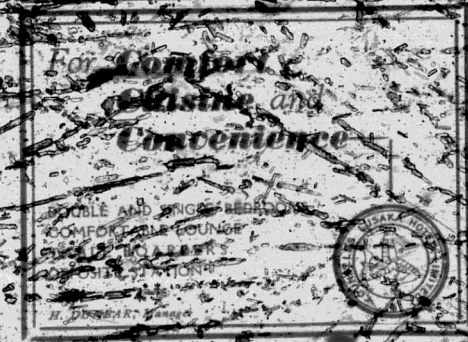 For Comfort
Cuisine and
Convenience
DOUBLE AND SINGLE BEDROOMS
COMFORTABLE LOUNGE
BOARDERS
OPPOSITE STATION
H. DUNBAR, Manager
LUSAKA HOTEL LIMITED